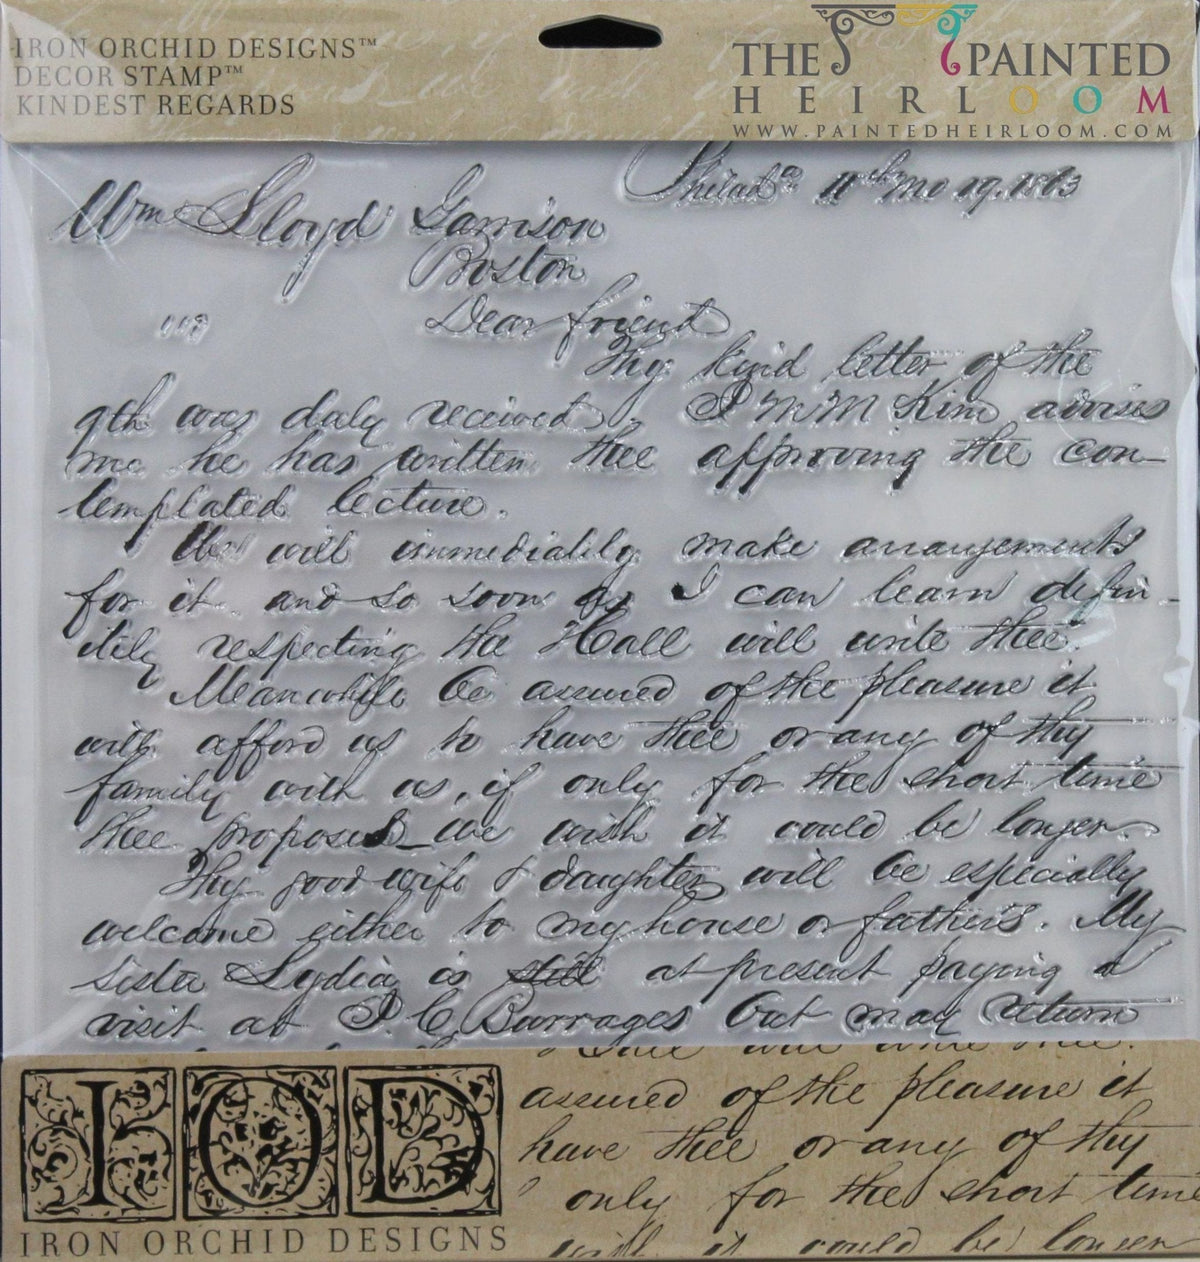 IRON ORCHID DESIGNS™
DECOR STAMP™
KINDEST REGARDS
THE PAINTED
HEIRLOOM
WWW.PAINTEDHEIRLOOM.COM
Philada 11th mo 19. 1863
Wm Lloyd Garrison
Boston
Dear friend
Thy kind letter of the
9th was duly received. J M M Kim advises
me he has written thee approving the con-
templated lecture.
We will immediately make arrangements
for it and so soon as I can learn defin-
itely respecting the Hall will write thee.
Meanwhile be assured of the pleasure it
will afford us to have thee or any of thy
family with us, if only for the short time
thee proposes_ we wish it could be longer.
Thy good wife & daughter will be especially
welcome either to my house or father's. My
sister Lydia is still at present paying a
visit at J. C. Burrages but may return
assured of the pleasure it
have thee or any of thy
only for the short time
wish it could be longer
IOD
IRON ORCHID DESIGNS